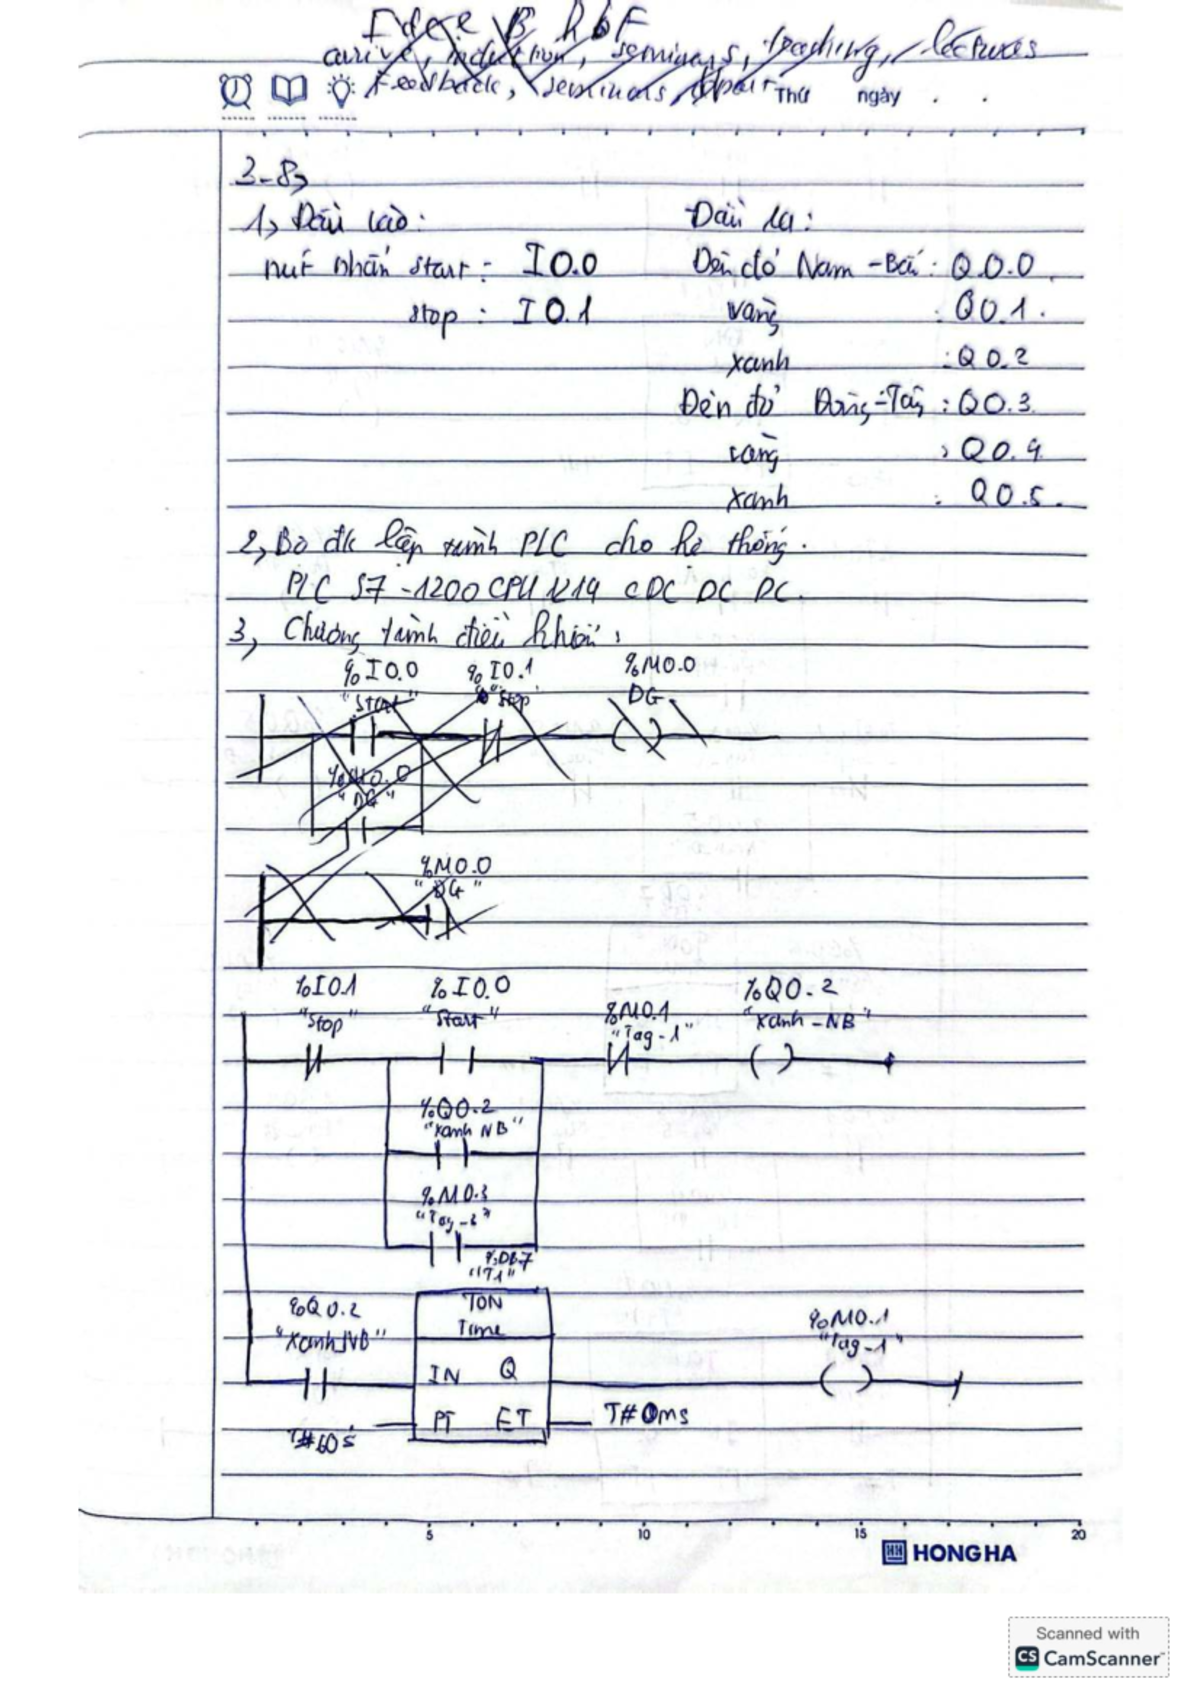 arrive, induction, seminars, teaching, lectures
Feedback, seminars, Thứ ngày . .
3-8,
1, Đầu vào: Đầu ra:
nút nhấn start: I0.0 Đèn đỏ Nam-Bắc: Q0.0
stop: I0.1 vàng : Q0.1.
xanh : Q0.2
Đèn đỏ Đông-Tây: Q0.3
vàng : Q0.4
xanh : Q0.5.
2, Bộ đk lập trình PLC cho hệ thống.
PLC S7-1200 CPU 1214 C DC DC DC.
3, Chương trình điều khiển:
%I0.0 %I0.1 %M0.0
"Start" "Stop" DG
%M0.0
"DG"
%M0.0
"DG"
%I0.1 %I0.0 %M0.1 %Q0.2
"Stop" "Start" "Tag-1" "Xanh-NB"
%Q0.2
"Xanh NB"
%M0.3
%DB7
"T1"
%Q0.2 TON %M0.1
"Xanh NB" Time "Tag-1"
IN Q
T#60s PT ET T#0ms
5 10 15 20
HONG HA
Scanned with
CS CamScanner